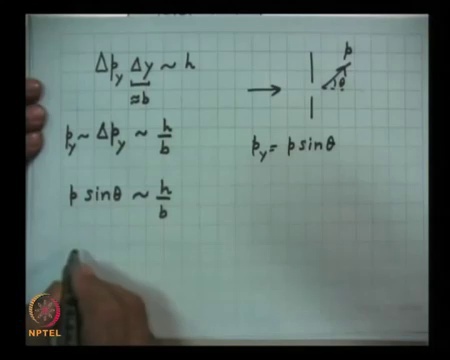 Δp_y Δy ~ h
≈b
p_y ~ Δp_y ~ h/b
p sinθ ~ h/b
p
θ
p_y = p sinθ
NPTEL